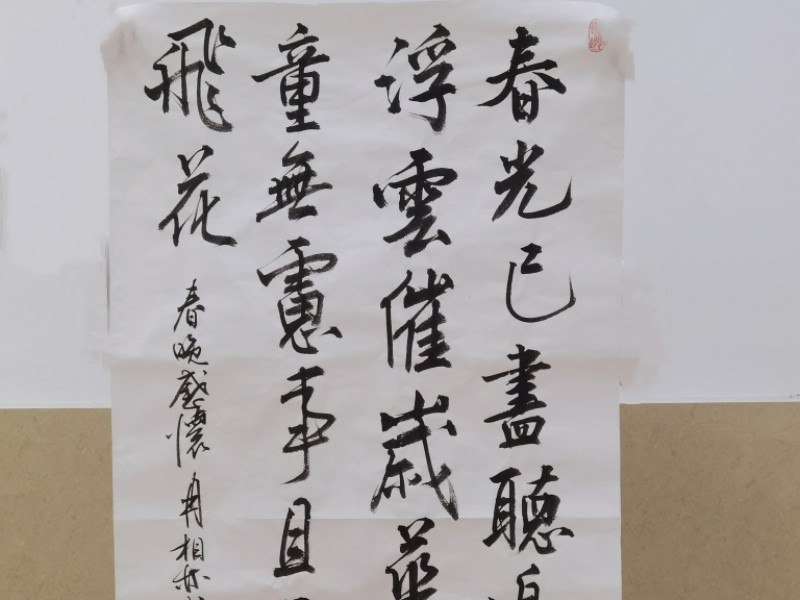 春光已盡聽
浮雲催歲華
童無慮事目
飛花
春晚感懷 月相